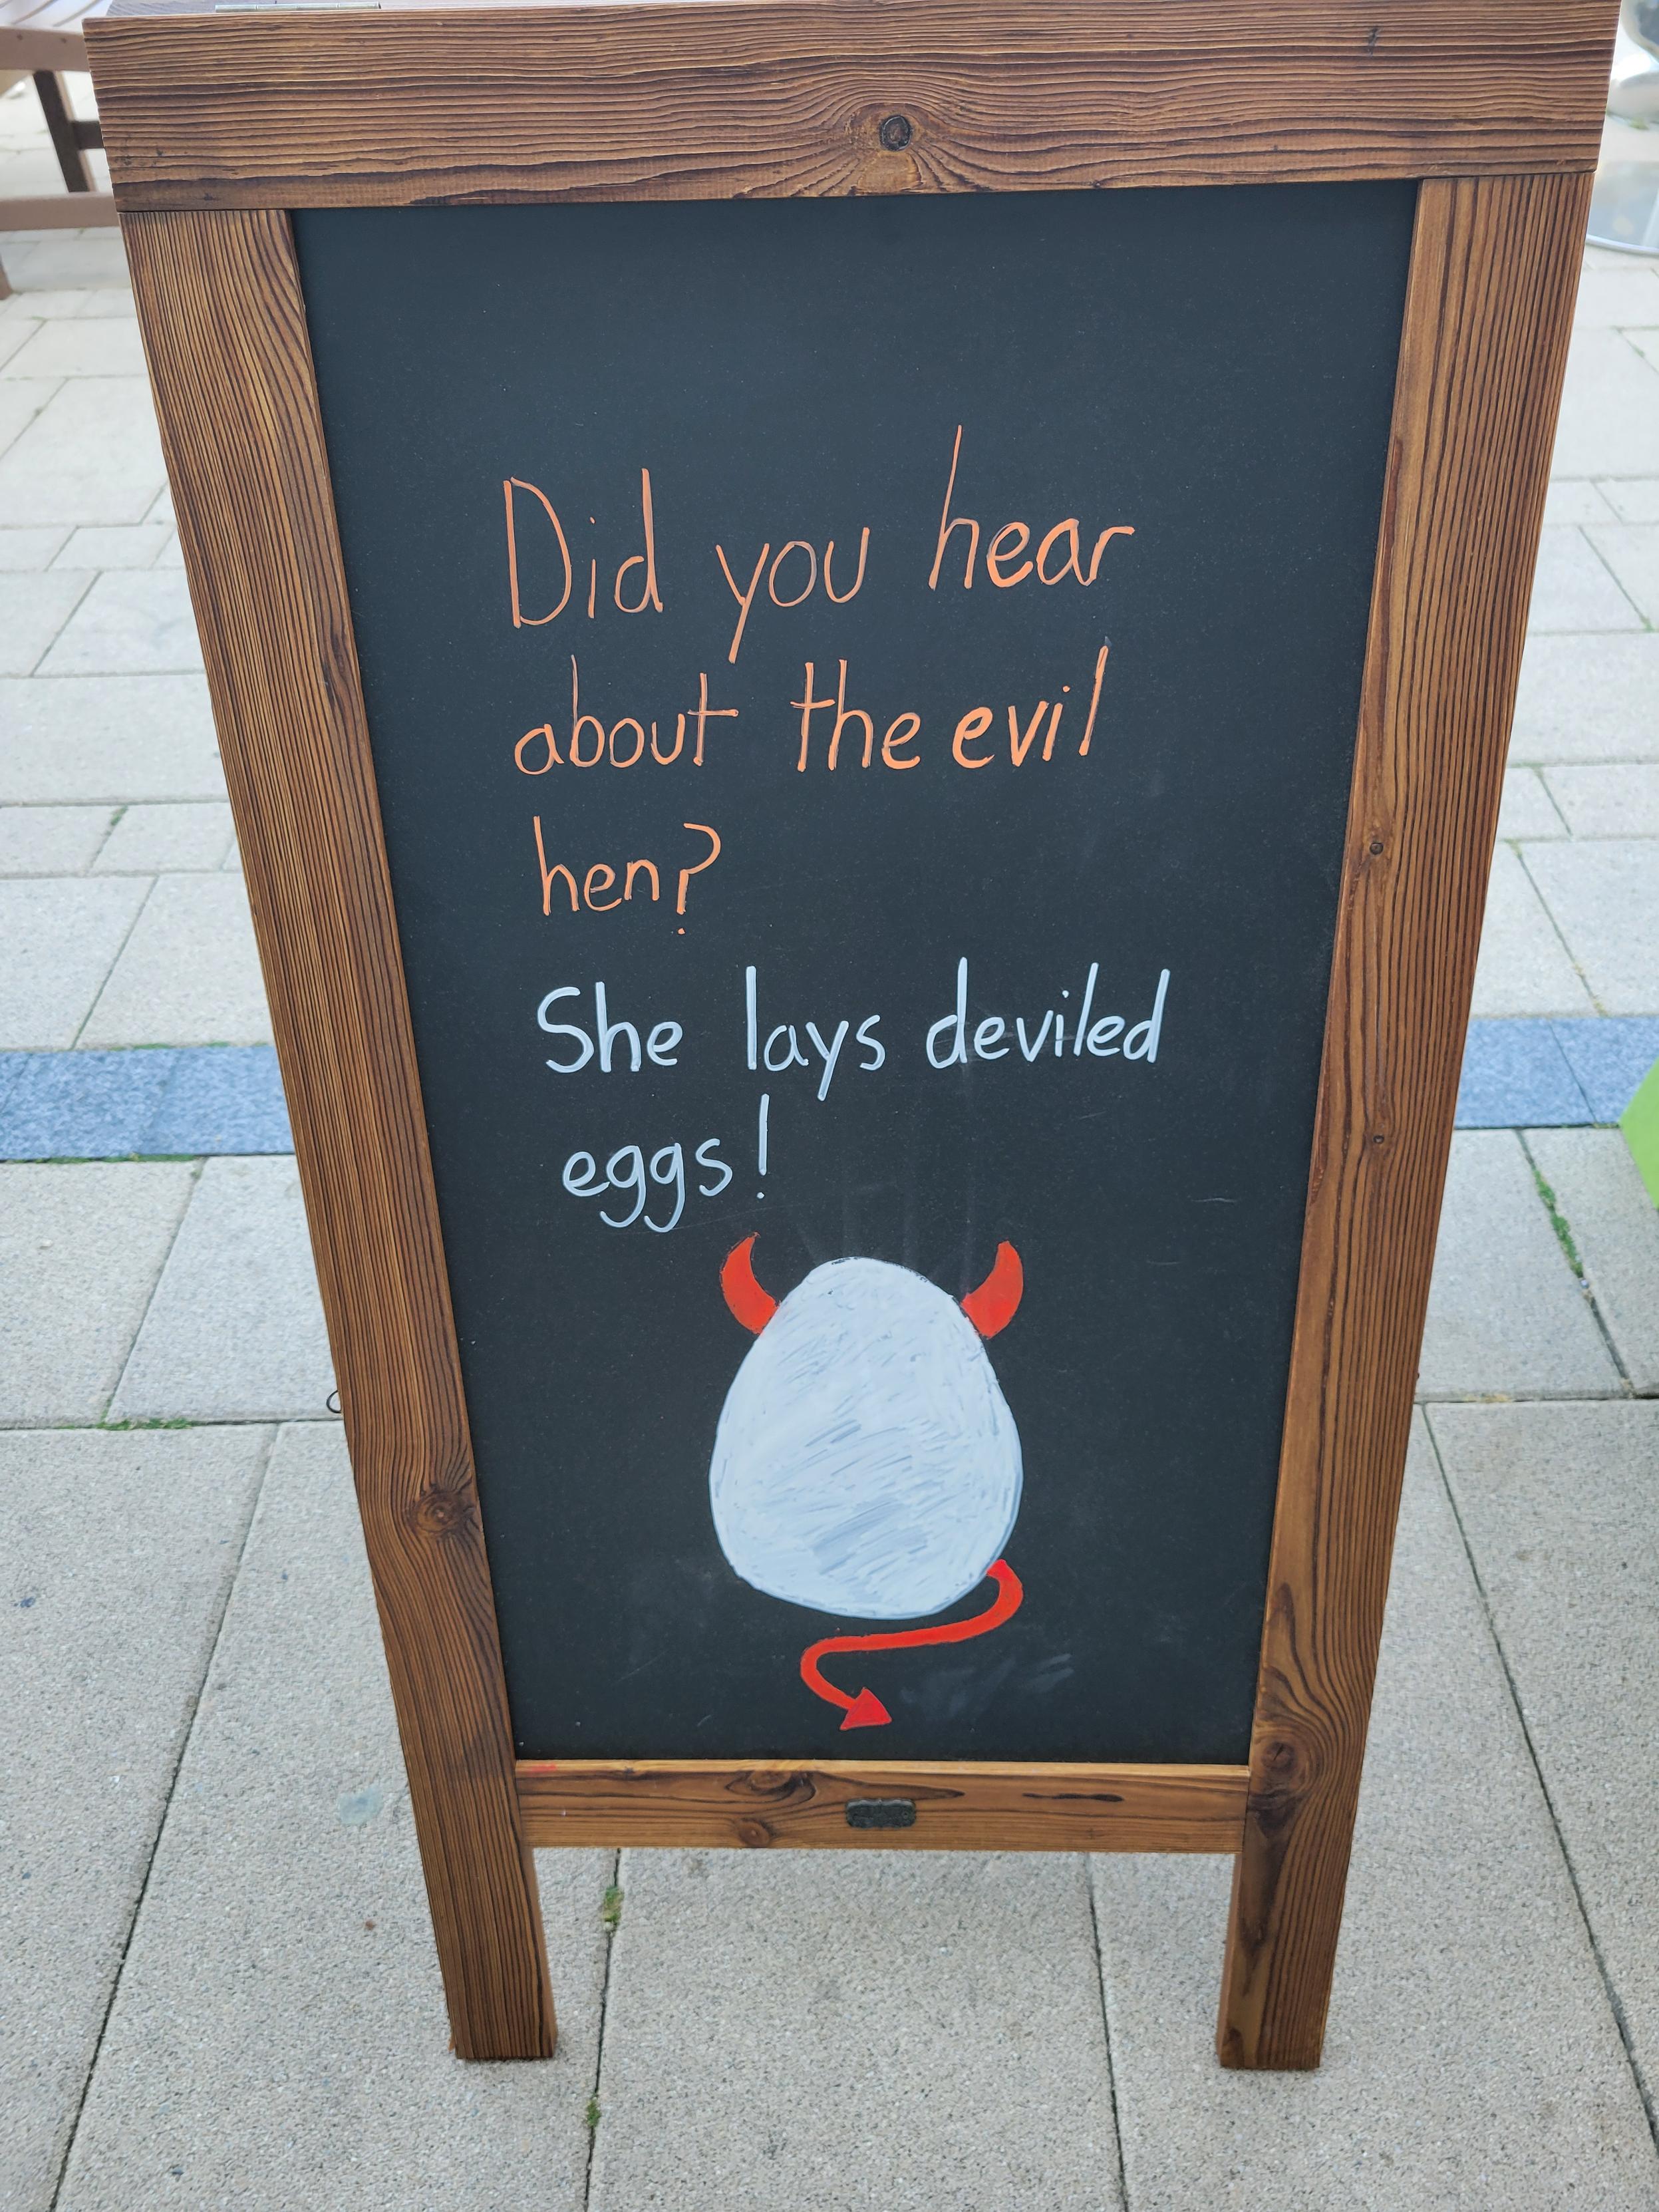 Did you hear
about the evil
hen?
She lays deviled
eggs!